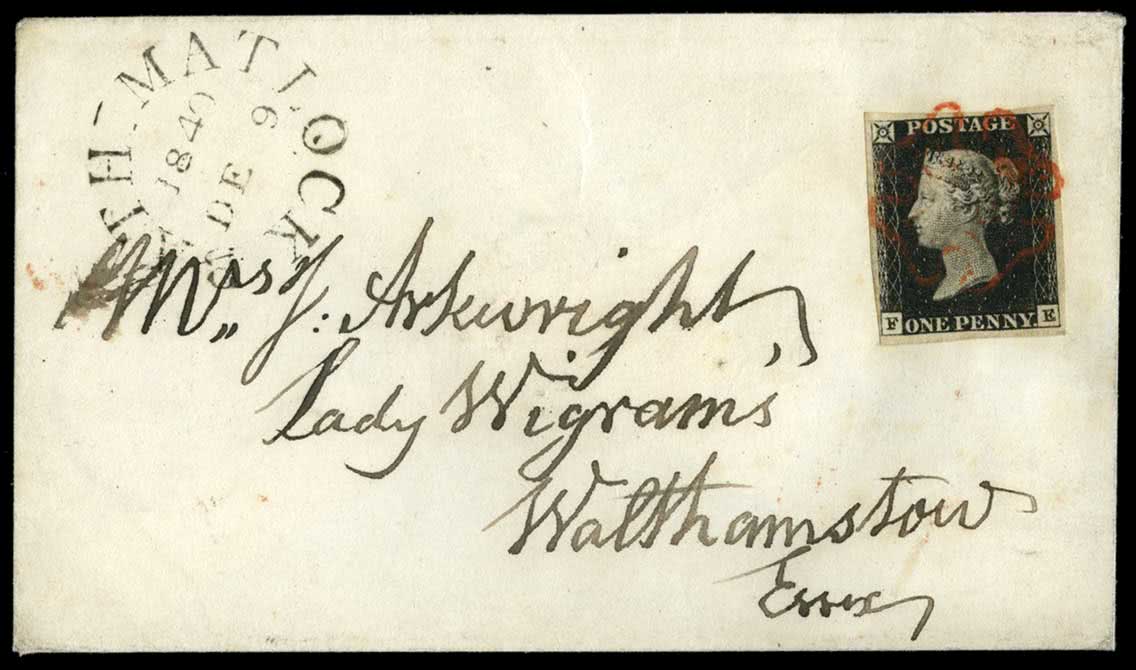 MATLOCK BATH
1840
DE 9
POSTAGE
F ONE PENNY. E
Mrs J: Arkwright,
Lady Wigrams
Walthamstow
Essex